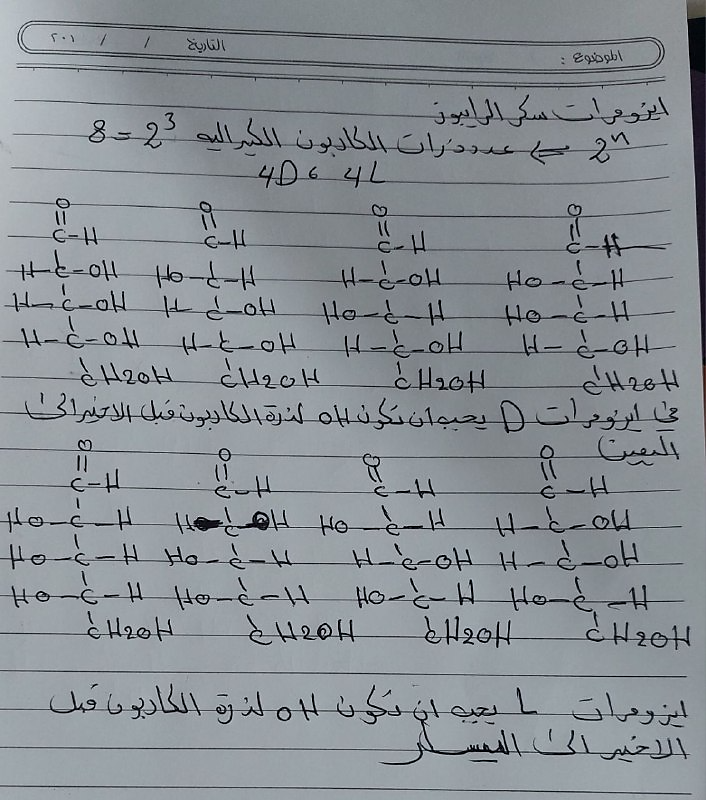 الموضوع : التاريخ / / ٢٠١
ايزومرات سكر الرايبوز
2ⁿ ⇐ عدد ذرات الكاربون الكيراليه 2³ = 8
4D 6 4L
O O O O
|| || || ||
C-H C-H C-H C-H
H-C-OH HO-C-H H-C-OH HO-C-H
H-C-OH H-C-OH HO-C-H HO-C-H
H-C-OH H-C-OH H-C-OH H-C-OH
CH2OH CH2OH CH2OH CH2OH
في ايزومرات D يجب ان تكون OH لذرة الكاربون قبل الاخير الى
اليمين
O O O O
|| || || ||
C-H C-H C-H C-H
HO-C-H H-C-OH HO-C-H H-C-OH
HO-C-H HO-C-H H-C-OH H-C-OH
HO-C-H HO-C-H HO-C-H HO-C-H
CH2OH CH2OH CH2OH CH2OH
ايزومرات L يجب ان تكون OH لذرة الكاربون قبل
الاخير الى اليسار